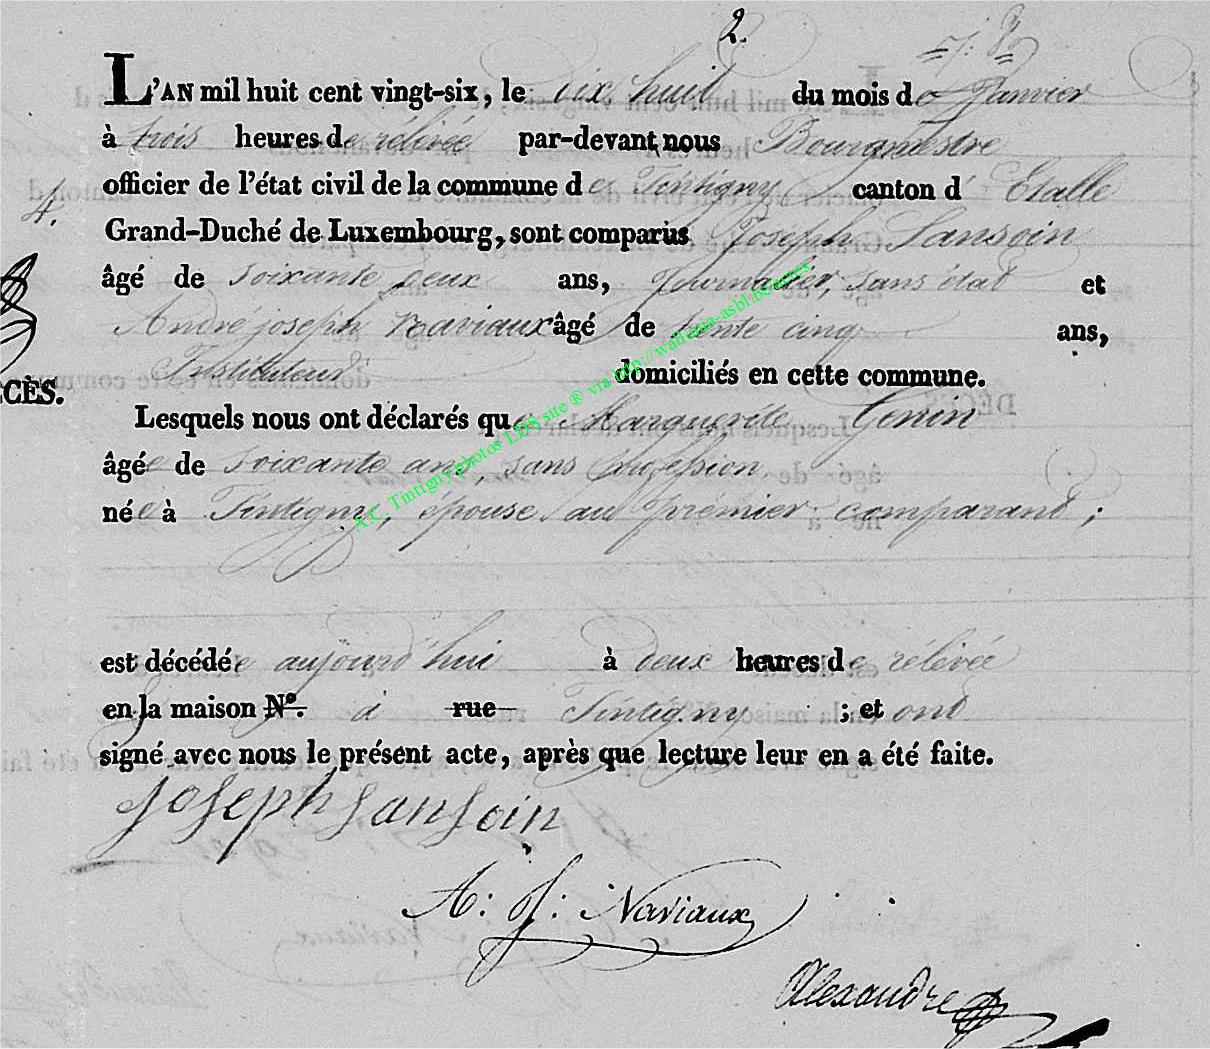 2.
L'AN mil huit cent vingt-six, le dix huit du mois de Janvier
à trois heures de rélévée par-devant nous Bourgmestre
officier de l'état civil de la commune de Tintigny canton d' Etalle
4.
Grand-Duché de Luxembourg, sont comparus Joseph Sansoin
âgé de soixante deux ans, Journalier, sans état et
André joseph Naviaux âgé de trente cinq ans,
Instituteur domiciliés en cette commune.
CÈS.
Lesquels nous ont déclarés que Marguerite Genin
âgée de soixante ans, sans profession
née à Tintigny, épouse au prémier comparant ;
est décédée aujourd'hui à deux heures de rélévée
en la maison N°. à rue Tintigny ; et ont
signé avec nous le présent acte, après que lecture leur en a été faite.
Joseph Sansoin
A: J: Naviaux
Alexandre
A.C. Tintigny photos LDS site ® via http://wallonia-asbl.be/actes